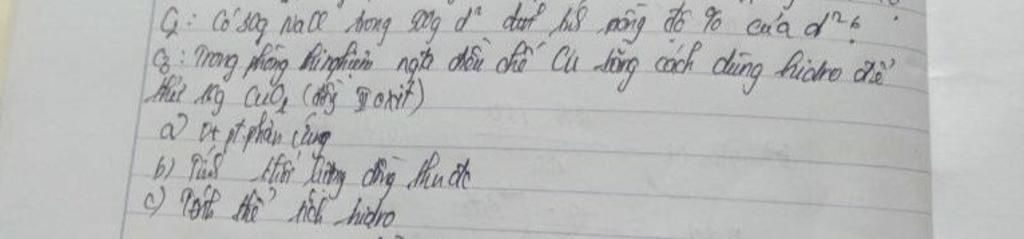 C₂: Có 30g NaCl trong 500g d² nồng độ % của d²?
C₃: Trong phòng thí nghiệm ngta điều chế Cu bằng cách dùng hidro để
khử g CuO₂ (đồng II oxit)
a) Vt pt phản ứng
b) Tính khối lượng đồng thu đc
c) Tính thể tích hidro